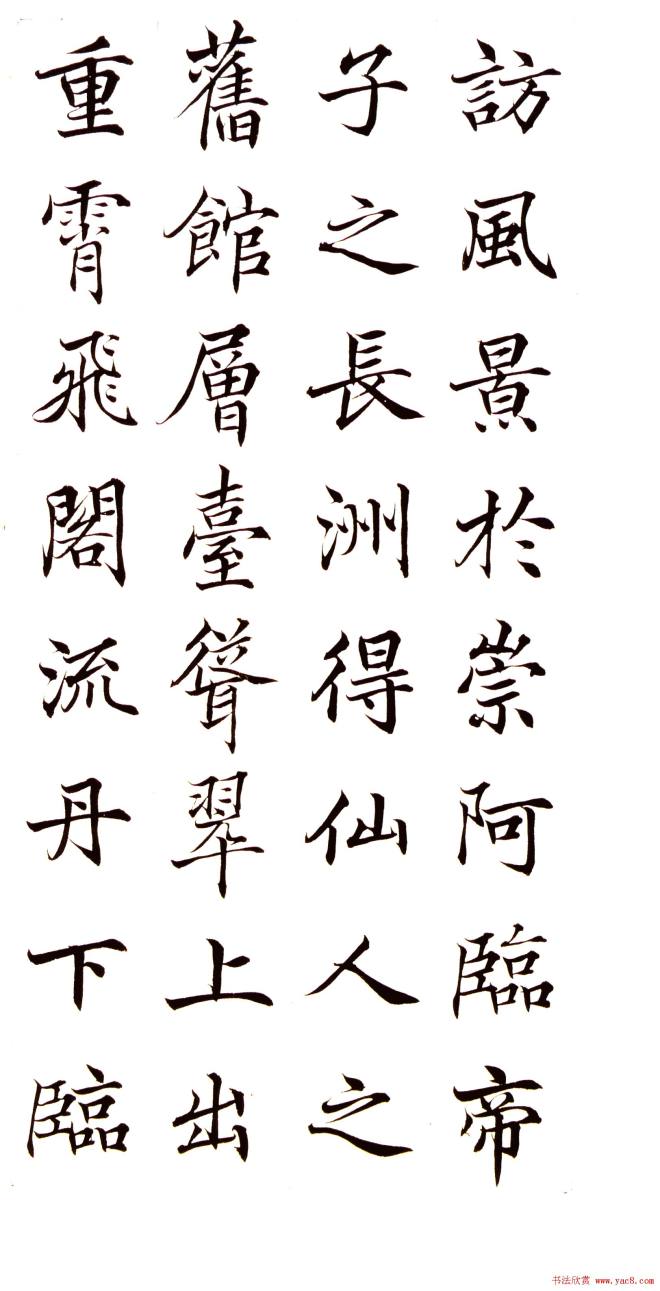 訪風景於崇阿臨帝
子之長洲得仙人之
舊館層臺聳翠上出
重霄飛閣流丹下臨
书法欣赏 www.yac8.com